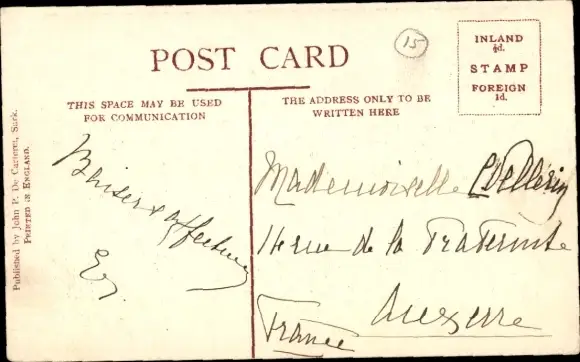 POST CARD
15
INLAND
½d.
STAMP
FOREIGN
1d.
THIS SPACE MAY BE USED
FOR COMMUNICATION
THE ADDRESS ONLY TO BE
WRITTEN HERE
Published by John P. De Carteret, Sark.
PRINTED IN ENGLAND.
Baisers affectueux
Mademoiselle Pellerin
14 rue de la Fraternité
Auxerre
France